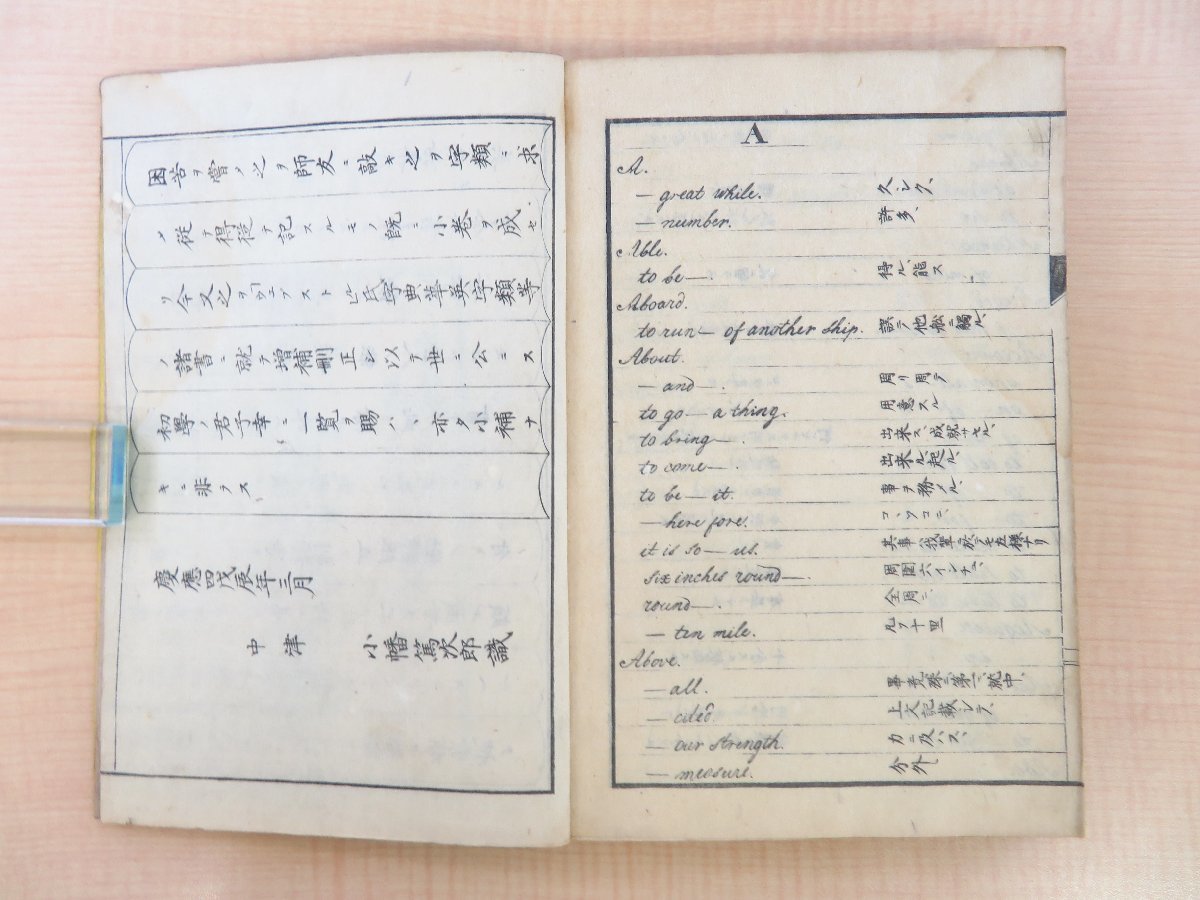 困苦ヲ嘗メ之ヲ師友ニ敲キ之ヲ字類ニ求
メ從テ得從テ記スルモノ既ニ小卷ヲ成セ
リ今又之ヲウエブスト氏字典華英字類等
ノ諸書ニ就テ增補刪正シ以テ世ニ公ニス
初學ノ君子幸ニ一覽ヲ賜ハヽ亦タ小補ナ
キニ非ラス
慶應四戊辰年三月
中津 小幡篤次郎識
A
A.
— great while. 久シク、
— number. 許多、
Able.
to be — . 得ル、能ス
Aboard.
to run — of another ship. 誤テ他舩ニ觸ル、
About.
— and 周リ周テ
to go — a thing. 用意スル
to bring — . 出来ス、成就サセル、
to come — . 出来ル、起ル、
to be — it. 事ヲ務メル、
— here fore. コヽソコニ、
it is so — us. 其事ハ我輩ニ於テモ左樣ナリ
six inches round — . 周囲六インチニ、
round — . 全周ニ、
— ten mile. 凡ソ十里
Above.
— all. 畢竟殊ニ第一ニ就中、
— cited. 上文記載シテ、
— our strength. 力ニ及ハス、
— measure. 分外